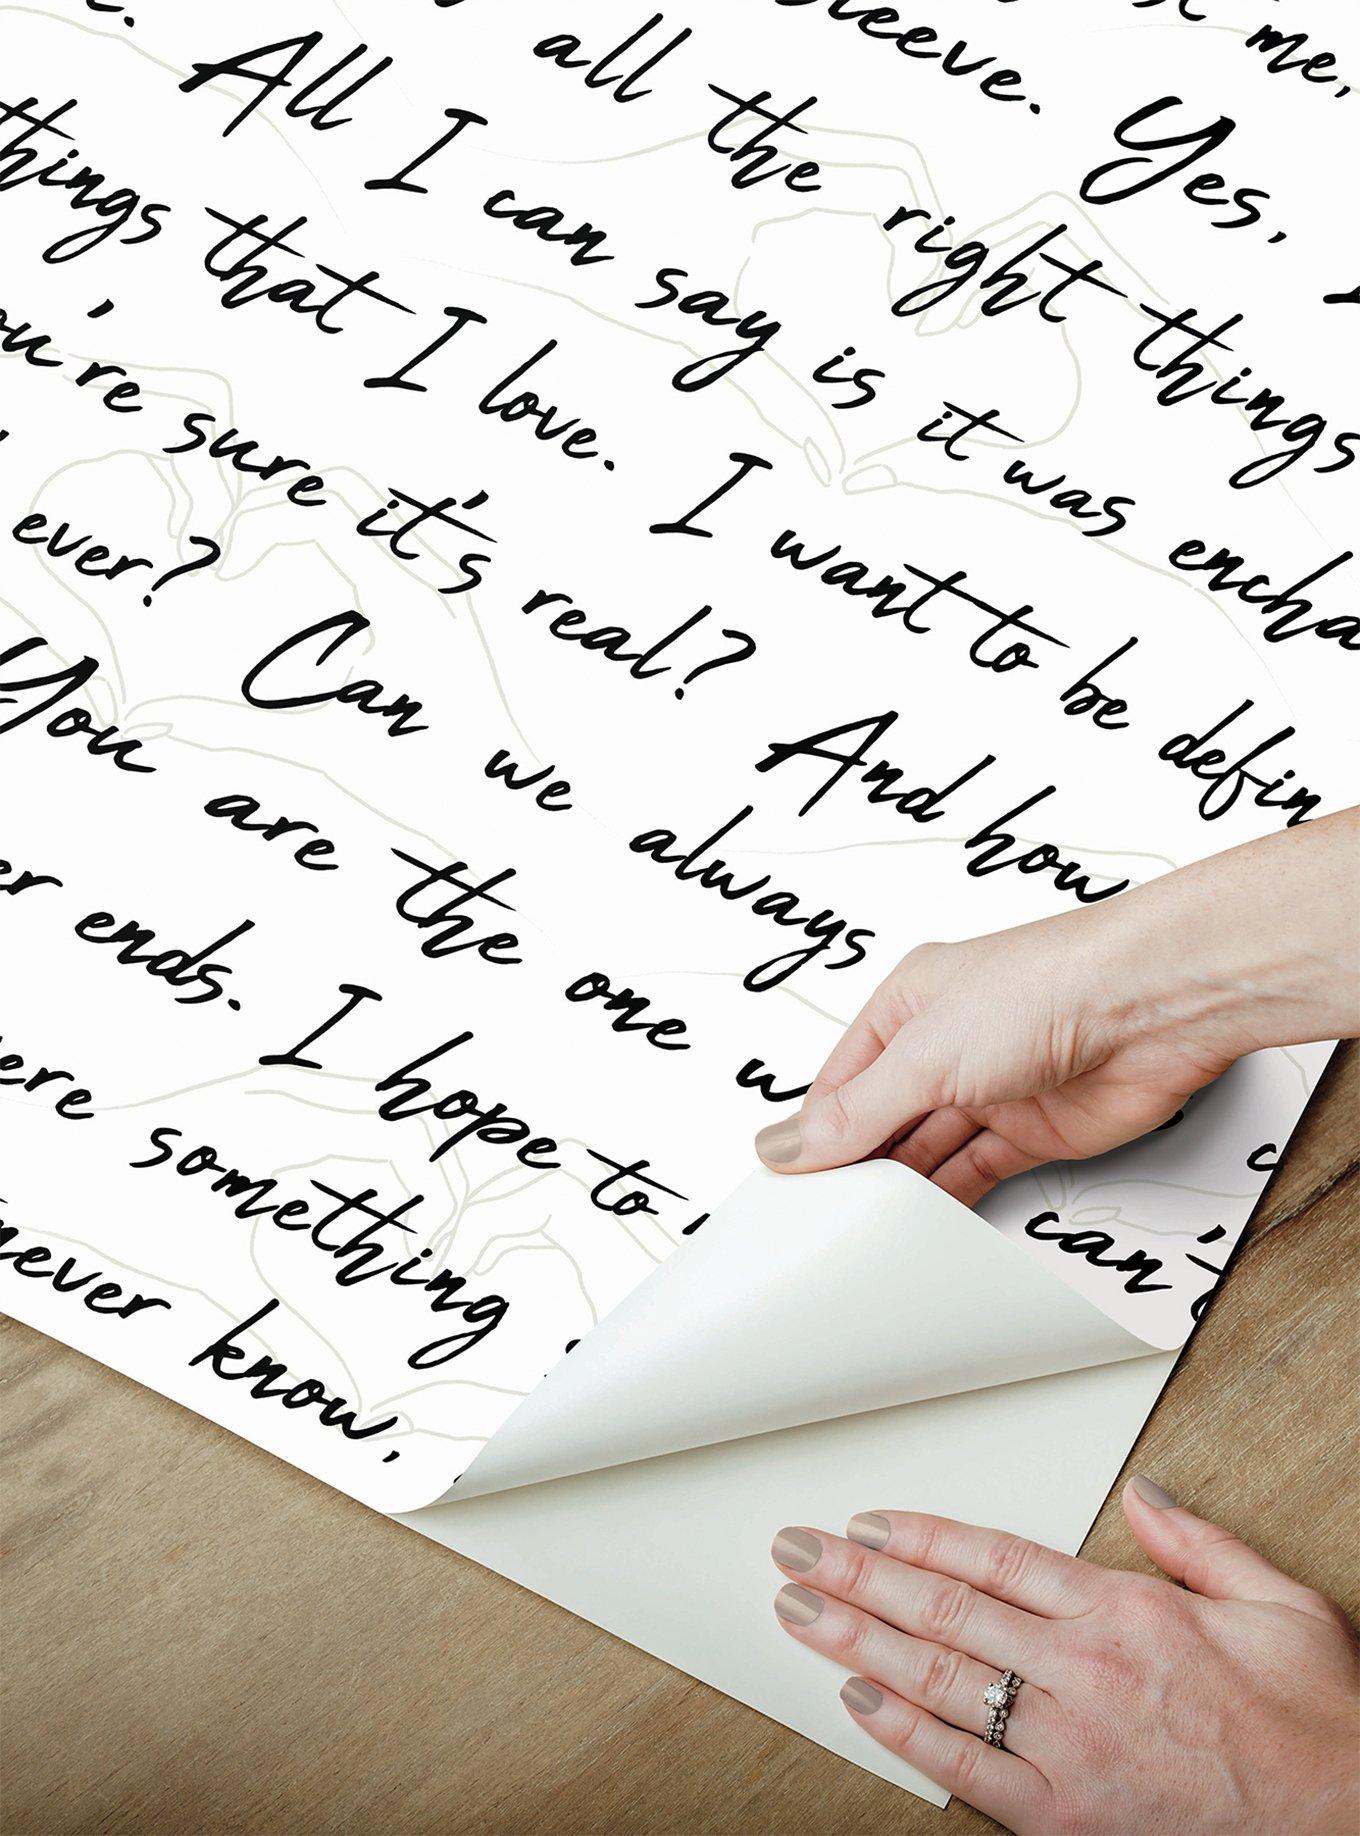 me,
sleeve. Yes,
all the right things
All I can say is it was encha
things that I love. I want to be defin
ou're sure it's real? And how
ever? Can we always
You are the one w can't
er ends. I hope to
ere something
never know,